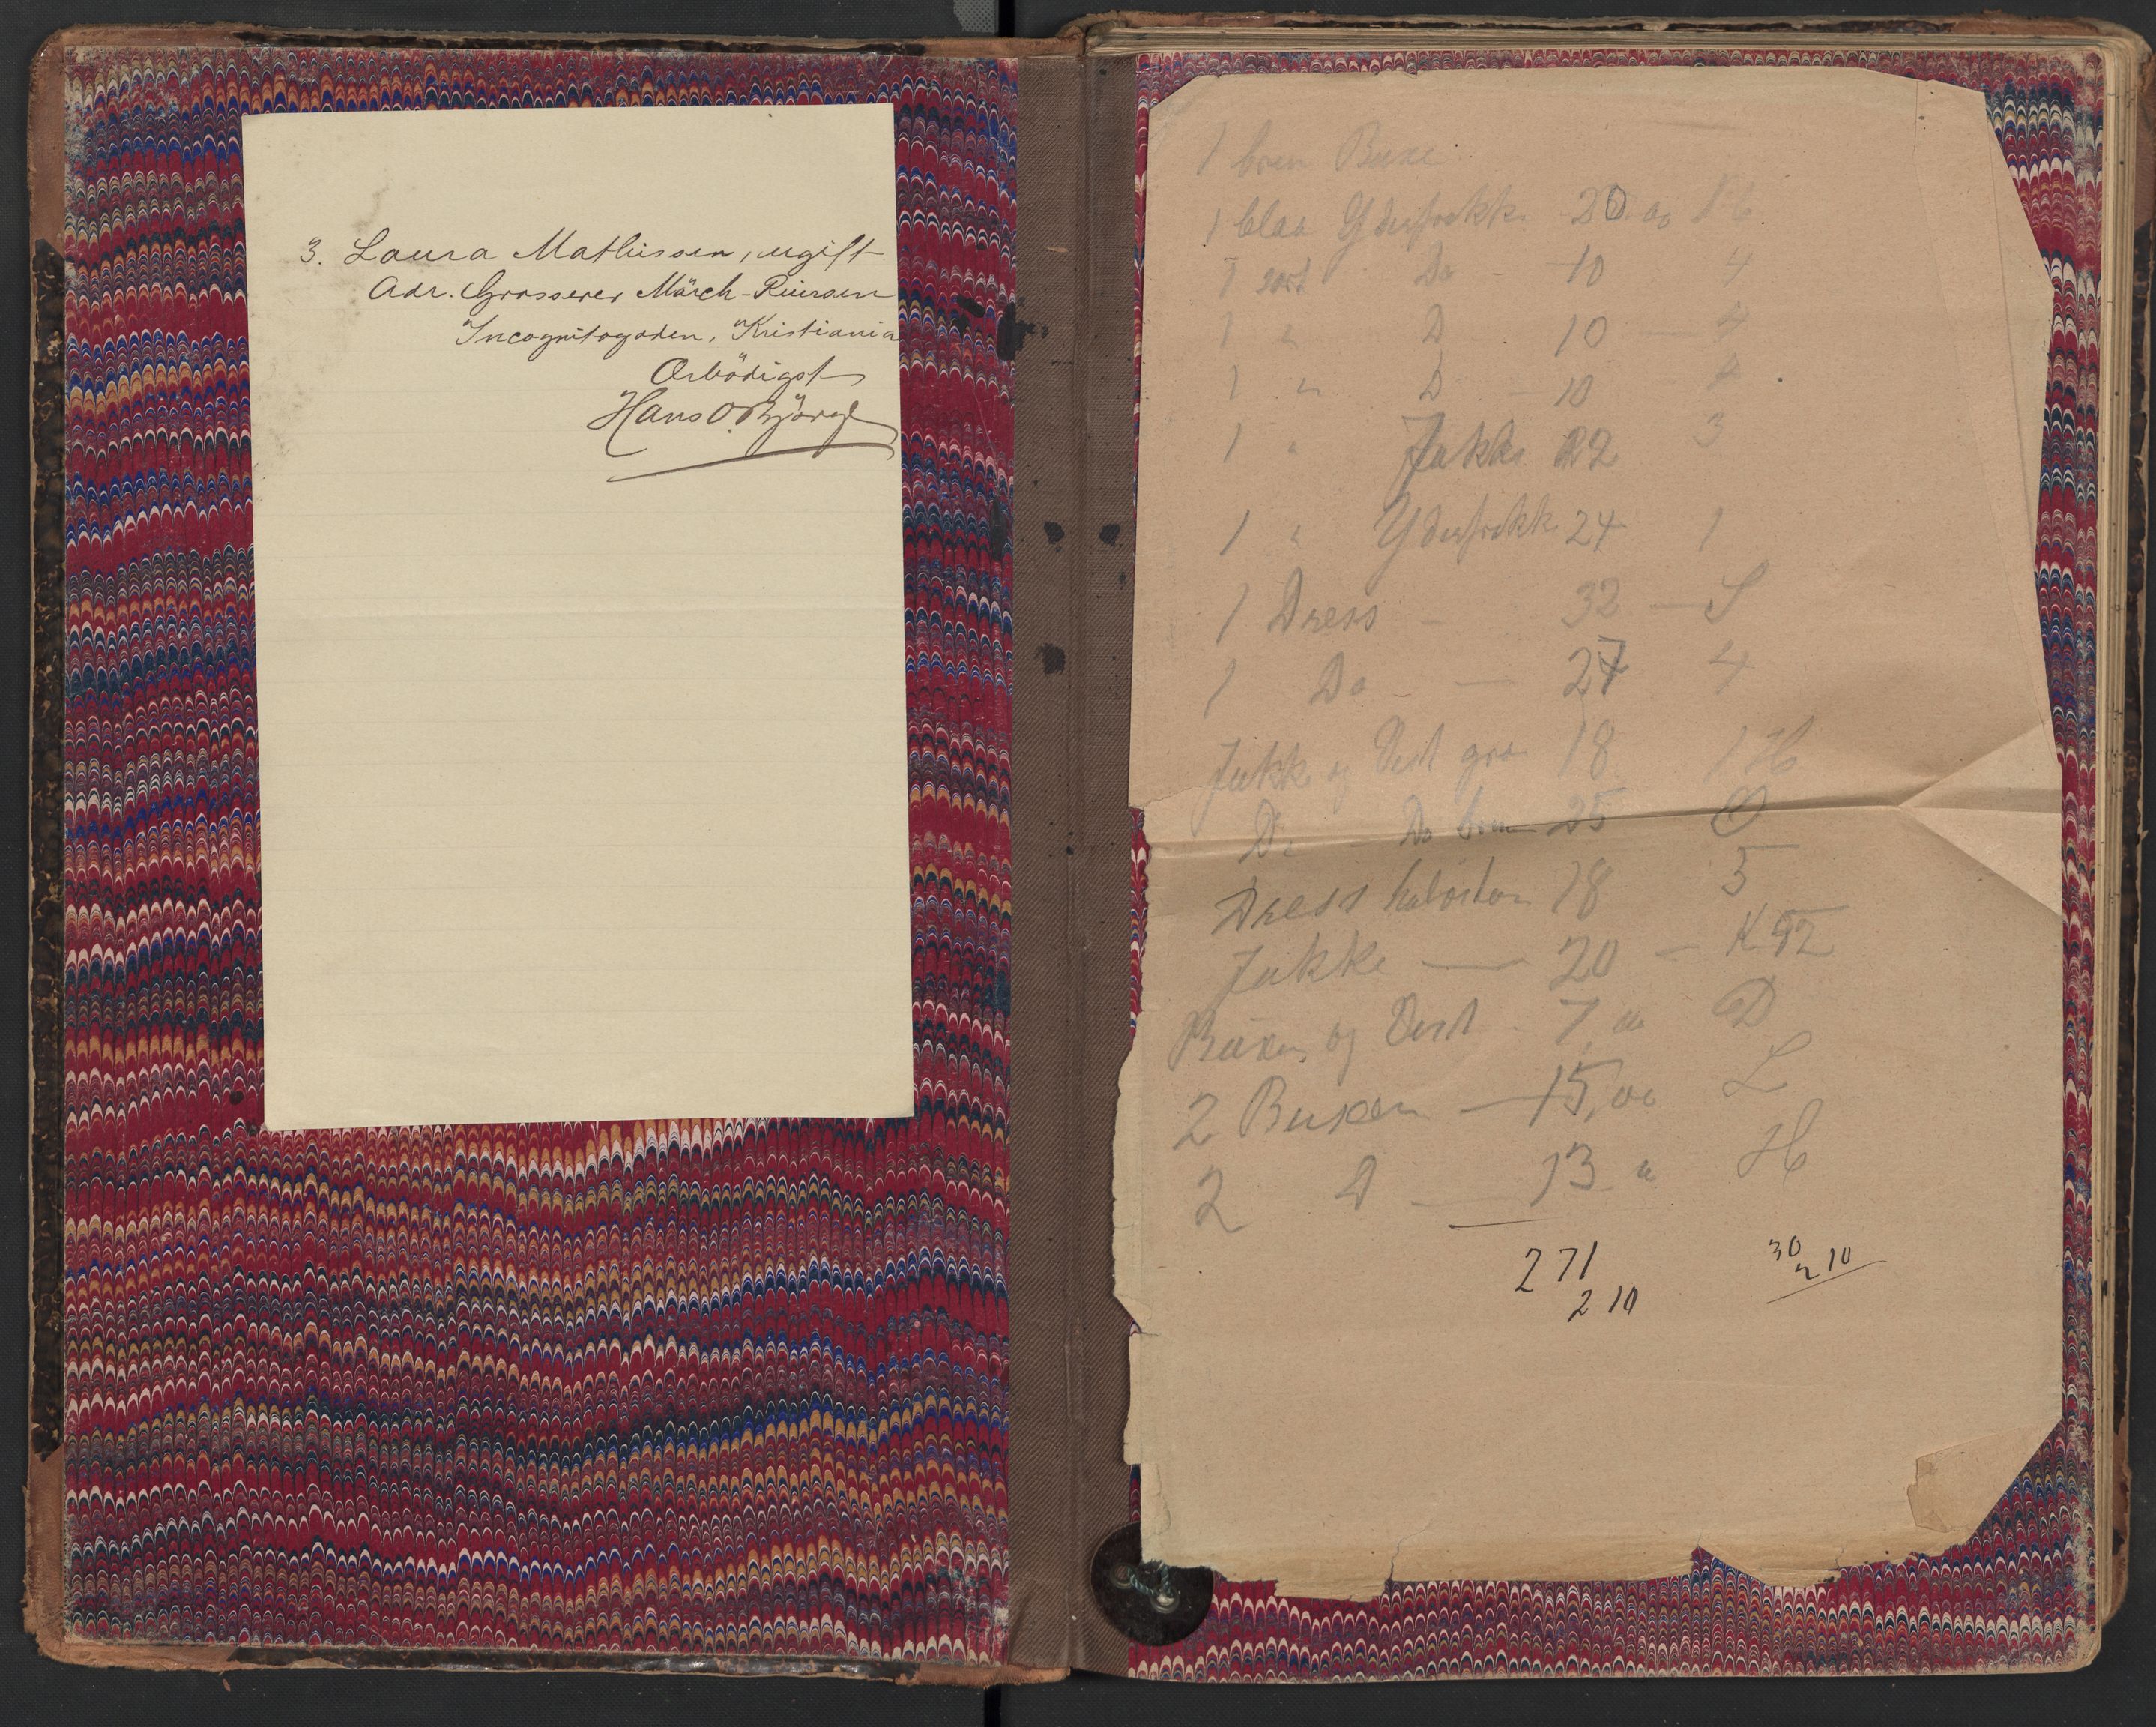 3. Laura Mathissen, ugift
Adr. Grosserer Mörch-Reiersen
Incognitogaden, Kristiania
Ærbödigst
Hans O. Bjørge
1 brun Buxe
1 blaa Yderfrakk 20 oo
1 sort Do - 10 4
1 " D 10 - 4
1 " D - 10 4
1 " Jakke 22 3
1 " Yderfrakk 24 1
1 Dress - 32 - S
1 Do - - 27 4
Jakke og Vest graa 18 1 H
Do - Do brun 25
Dress 18 5
Jakke - 20 - K 92
Buxe og Vest - 7, oo D
2 Buxer - 15, oo L
2 D - 13 " H
271
210
30
2 10